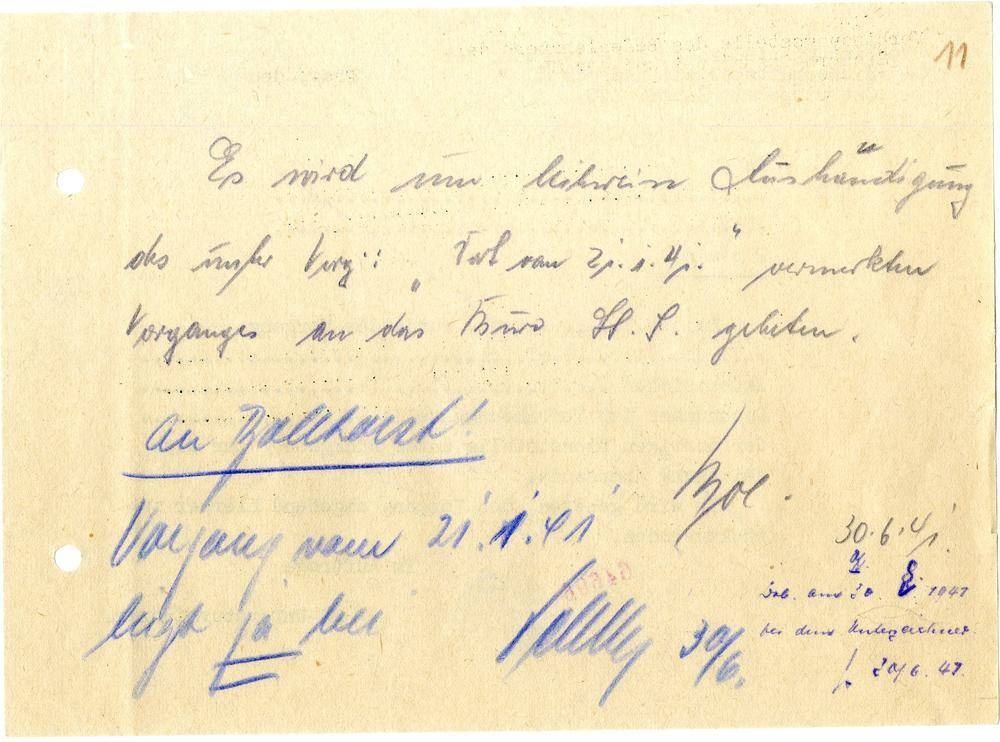 11
Es wird um leihweise Aushändigung
des unter Vorg.: „Fot vom 21.1.41." vermerkten
Vorganges an das Büro St. S. gebeten.
an
Vorgang vom 21.1.41
liegt ja bei
30/6.
30.6.41.
am 30. 6. 1941
bei dem Unterzeichner.
30/6. 41.